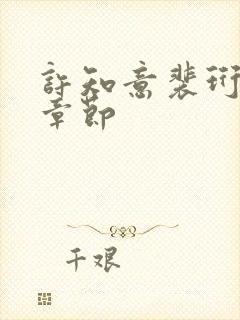 許知意裴珩
章節
千艰